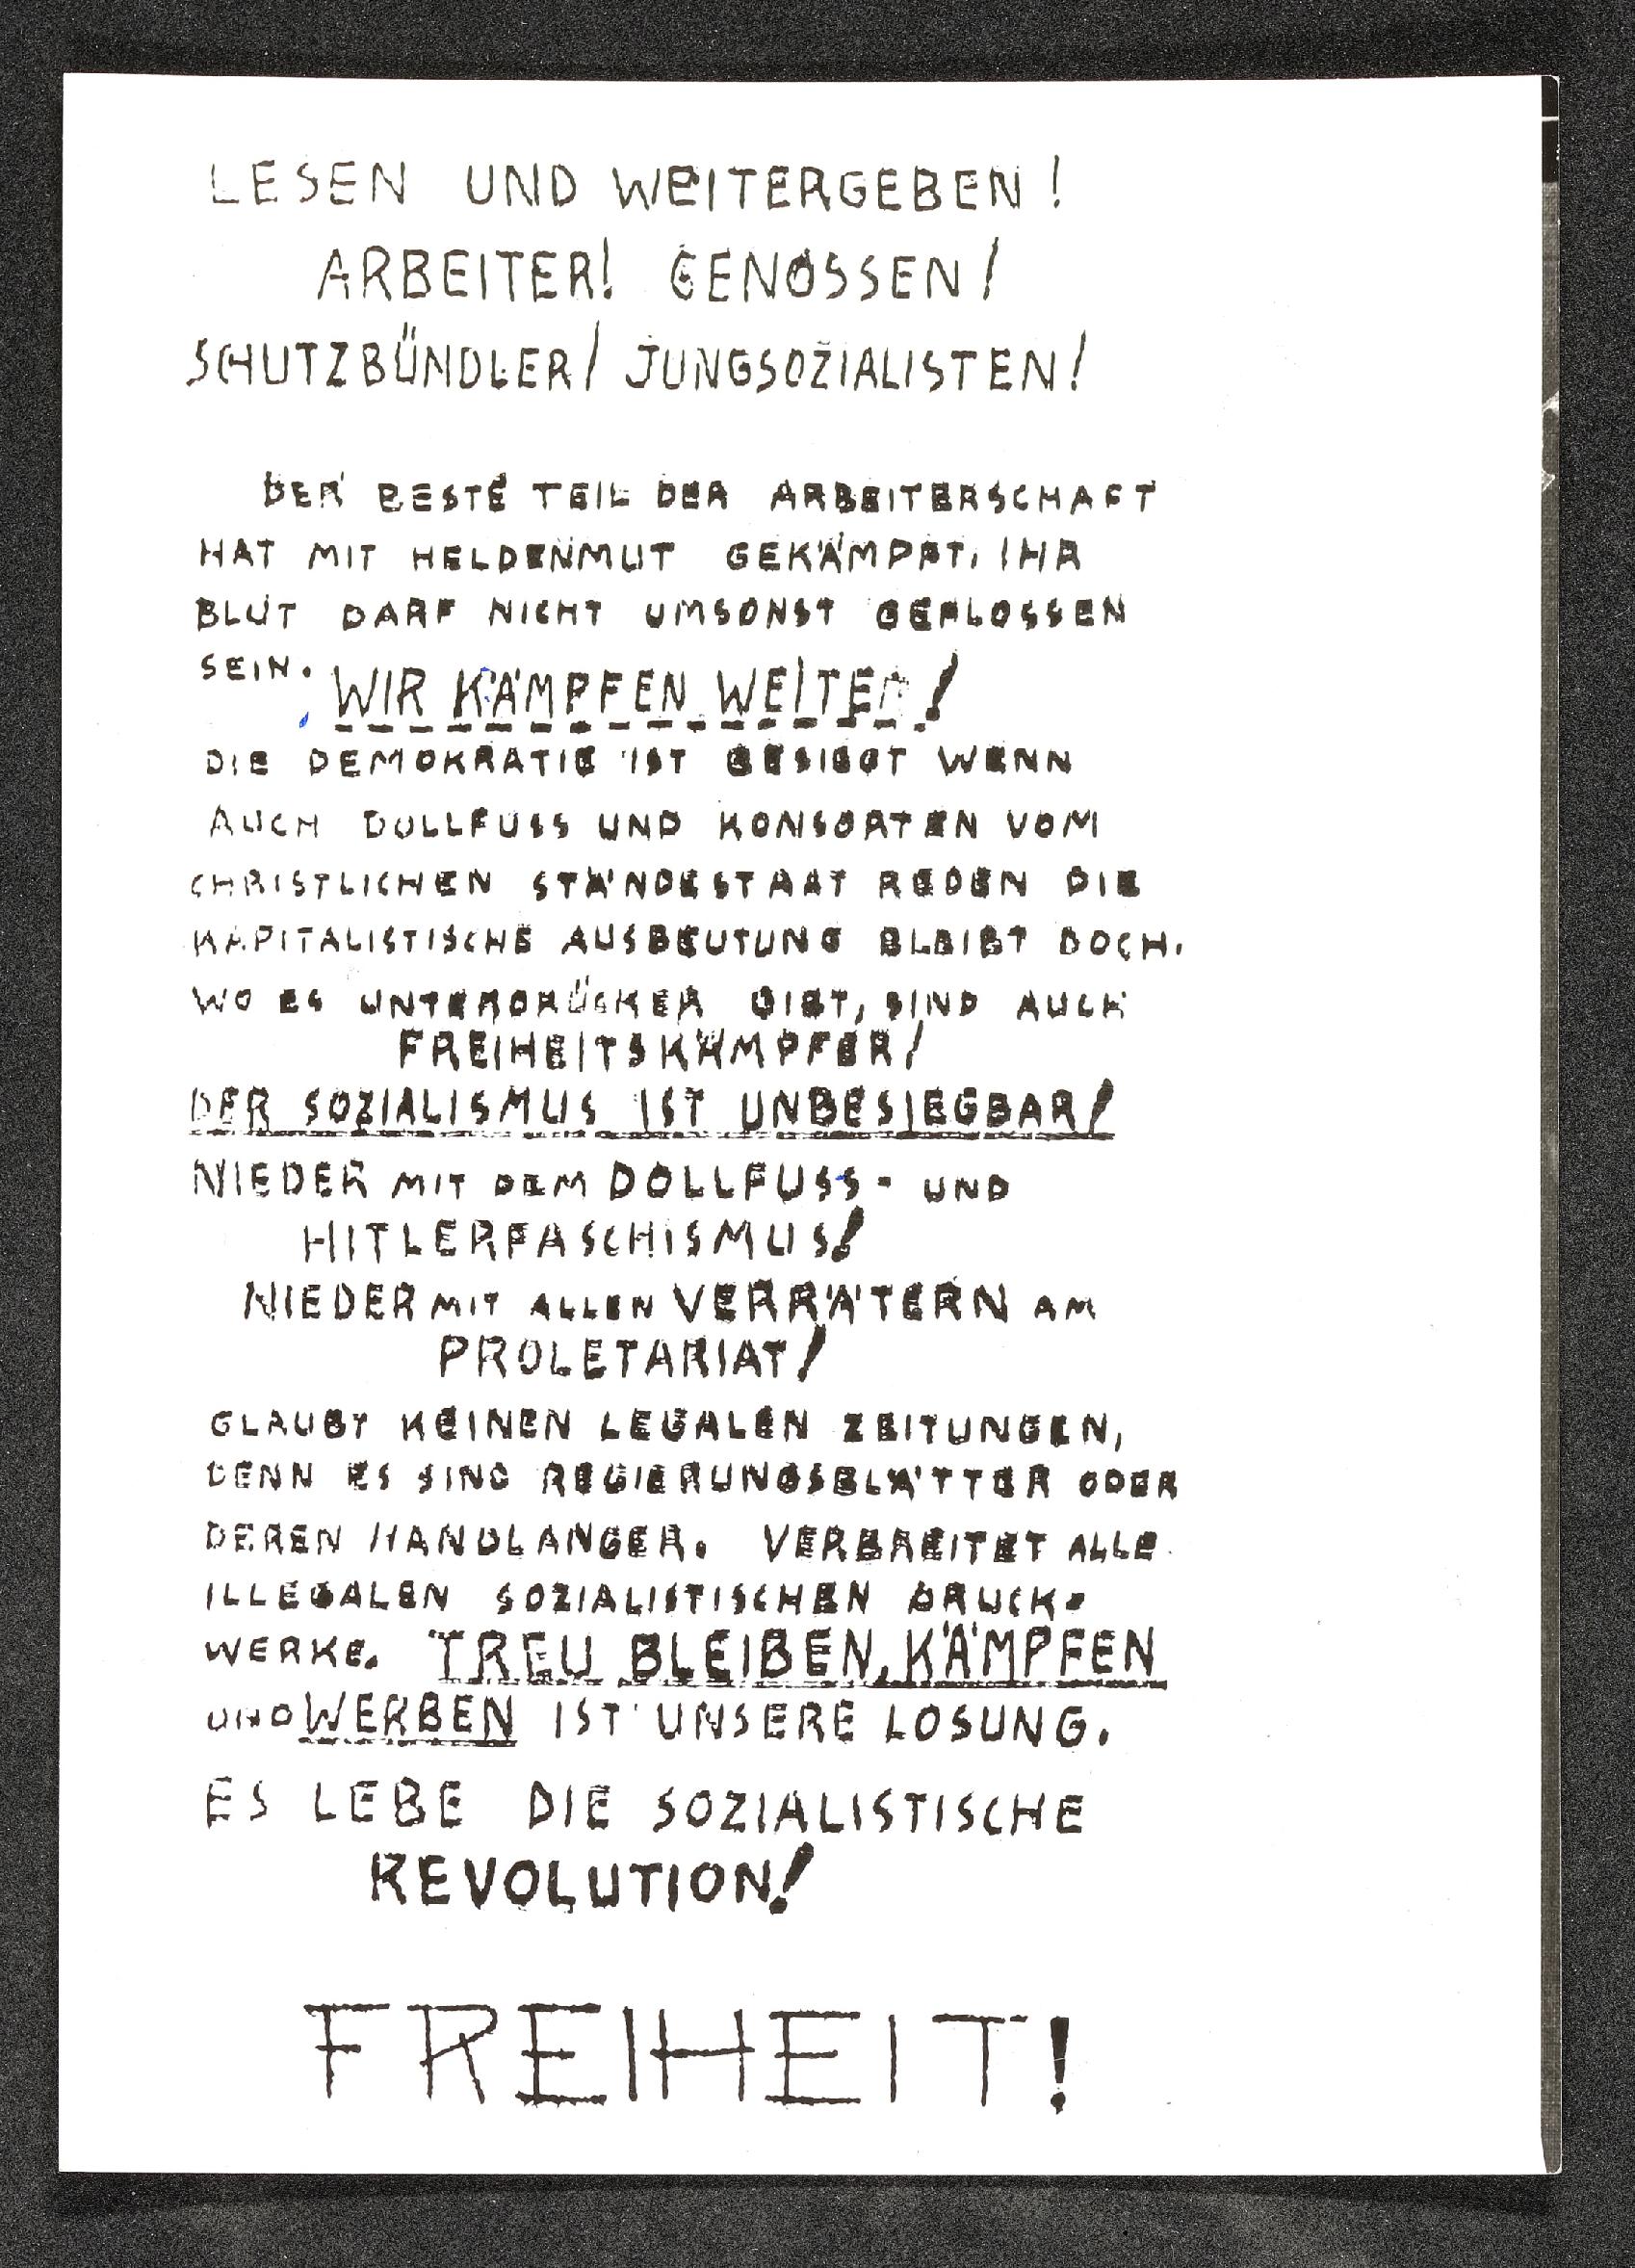 LESEN UND WEITERGEBEN!
ARBEITER! GENOSSEN!
SCHUTZBÜNDLER! JUNGSOZIALISTEN!
DER BESTE TEIL DER ARBEITERSCHAFT
HAT MIT HELDENMUT GEKÄMPFT. IHR
BLUT DARF NICHT UMSONST GEFLOSSEN
SEIN. WIR KÄMPFEN WEITER!
DIE DEMOKRATIE IST BESIEGT WENN
AUCH DOLLFUSS UND KONSORTEN VOM
CHRISTLICHEN STÄNDESTAAT REDEN DIE
KAPITALISTISCHE AUSBEUTUNG BLEIBT DOCH.
WO ES UNTERDRÜCKER GIBT, SIND AUCH
FREIHEITSKÄMPFER!
DER SOZIALISMUS IST UNBESIEGBAR!
NIEDER MIT DEM DOLLFUSS- UND
HITLERFASCHISMUS!
NIEDER MIT ALLEN VERRÄTERN AM
PROLETARIAT!
GLAUBT KEINEN LEGALEN ZEITUNGEN,
DENN ES SIND REGIERUNGSBLÄTTER ODER
DEREN HANDLANGER. VERBREITET ALLE
ILLEGALEN SOZIALISTISCHEN DRUCK-
WERKE. TREU BLEIBEN, KÄMPFEN
UND WERBEN IST UNSERE LOSUNG.
ES LEBE DIE SOZIALISTISCHE
REVOLUTION!
FREIHEIT!